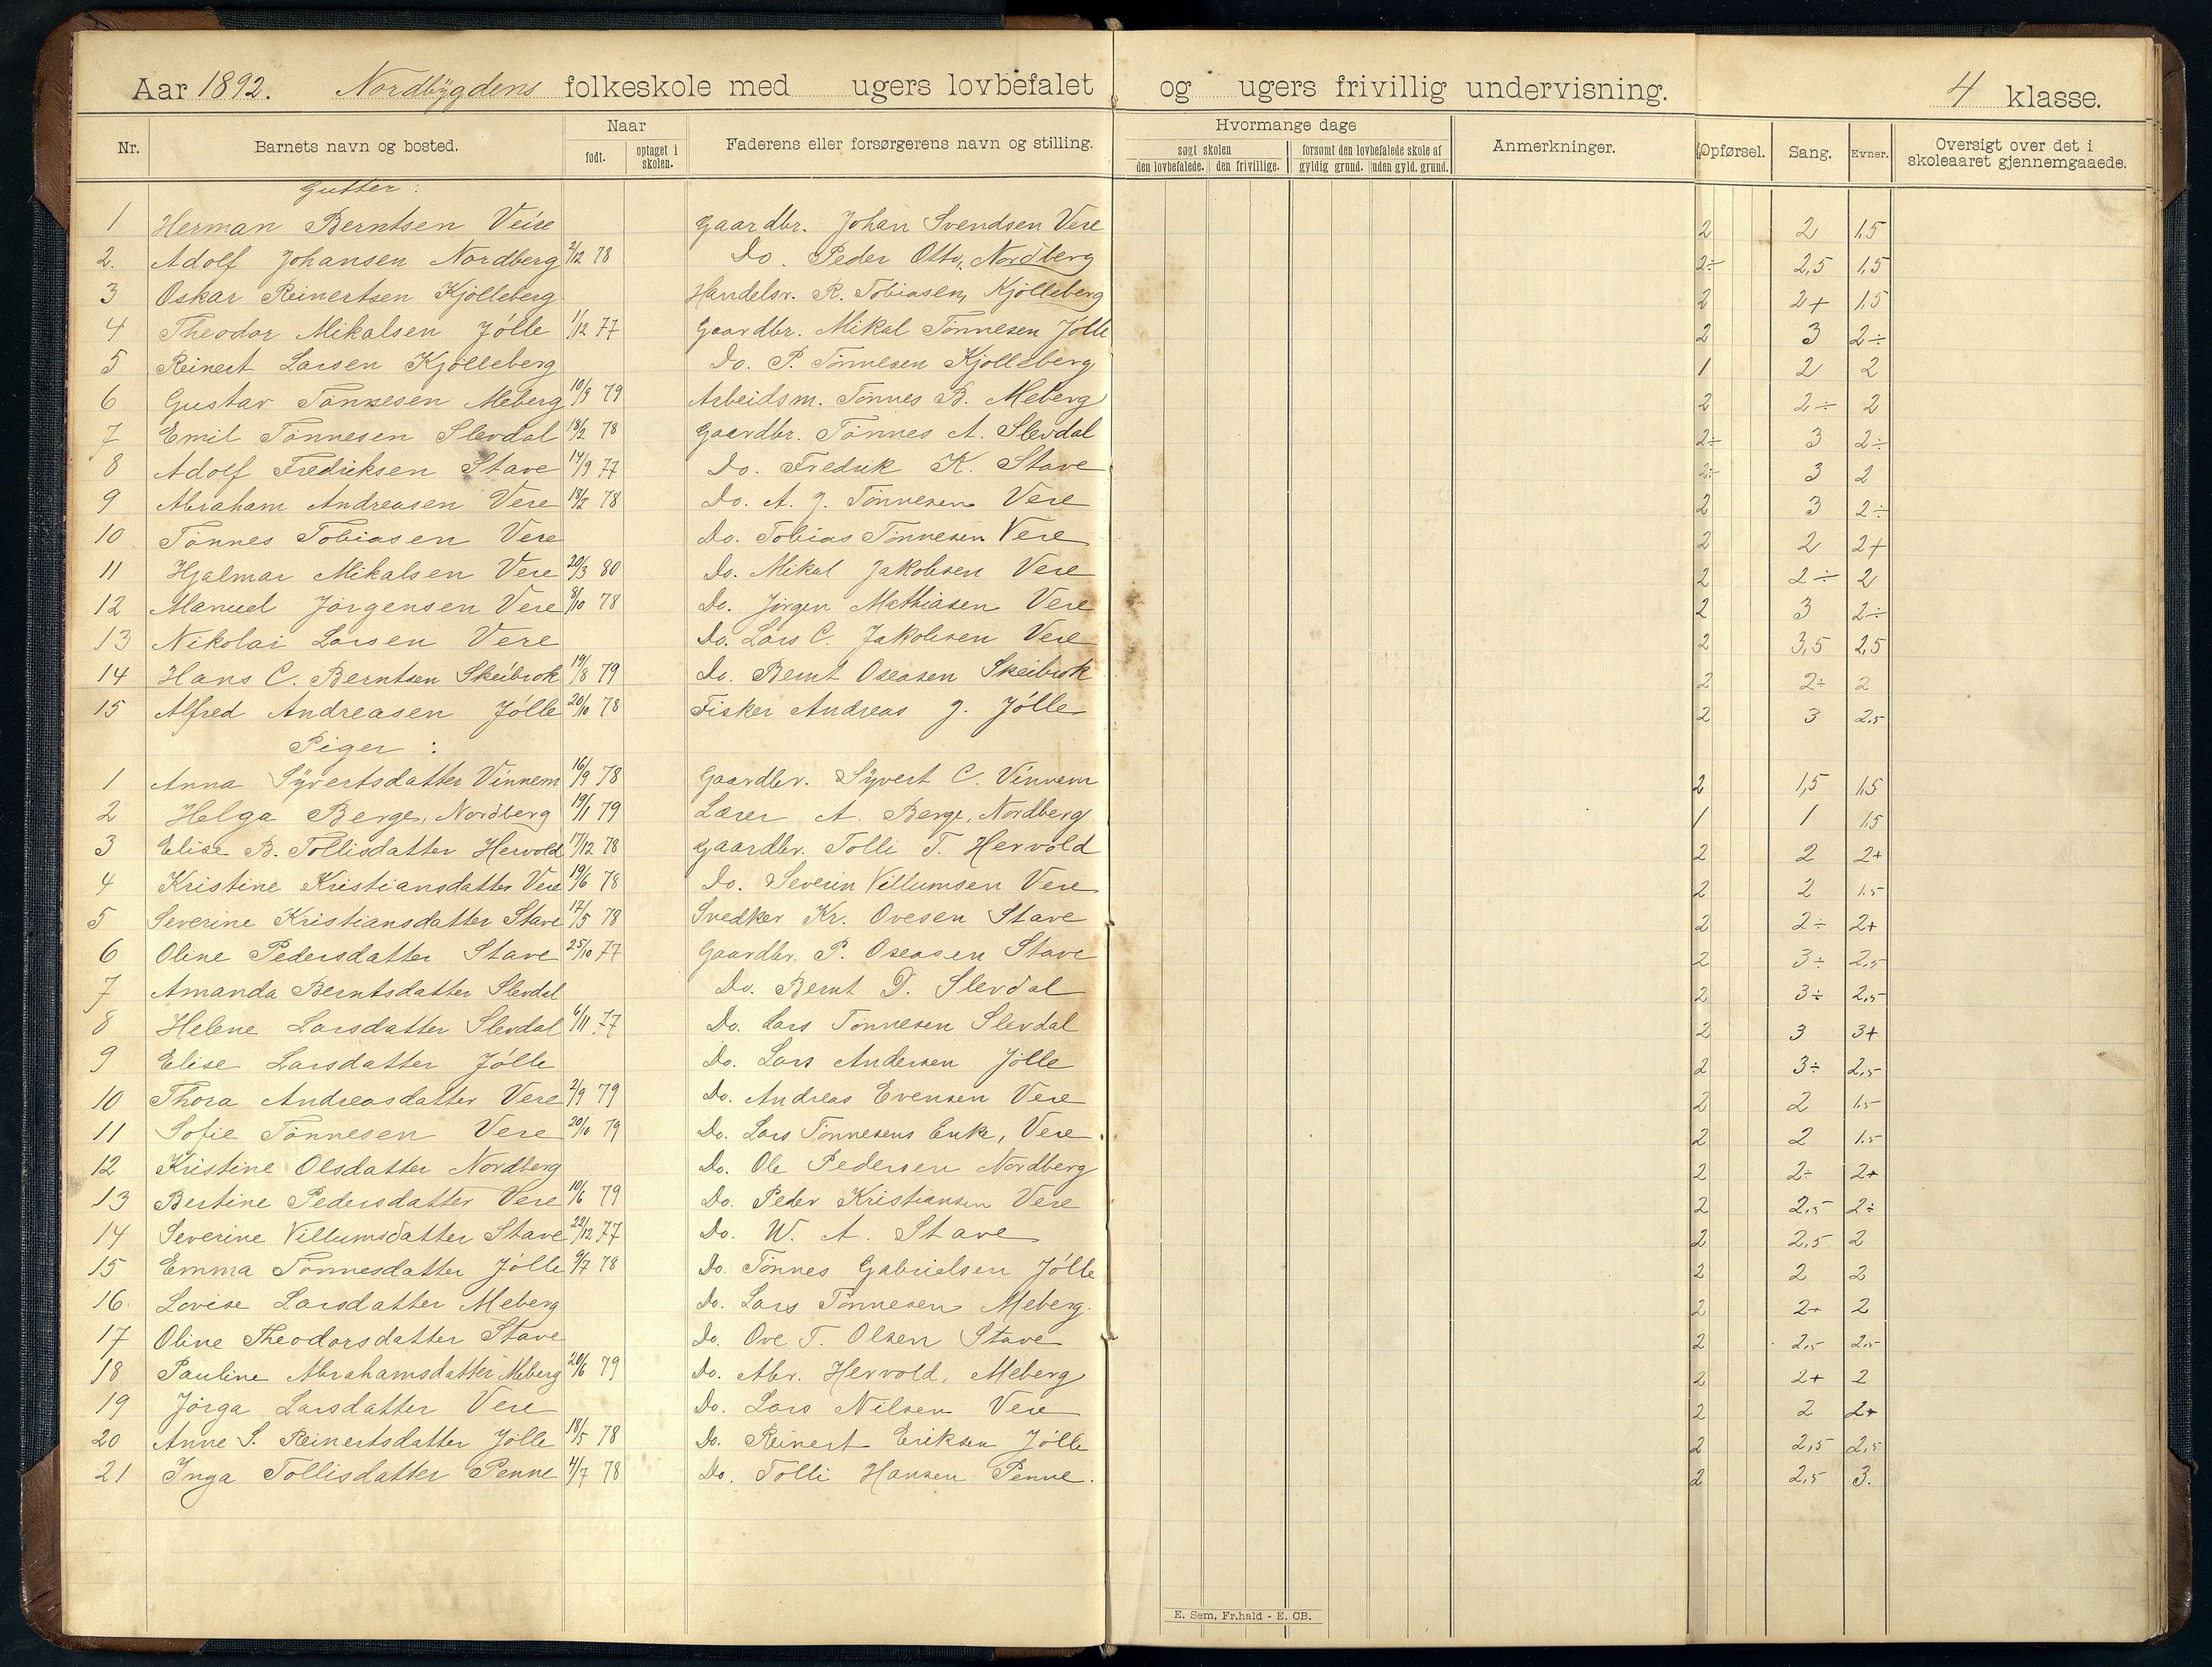 Aar 1892. Nordbygdens folkeskole med ugers lovbefalet og ugers frivillig undervisning. 4 klasse.
Nr. Barnets navn og bosted. Naar født. optaget i skolen. Faderens eller forsørgerens navn og stilling. Hvormange dage søgt skolen den lovbefalede. den frivillige. forsømt den lovbefalede skole af gyldig grund. uden gyld. grund. Anmerkninger. Opførsel. Sang. Evner. Oversigt over det i skoleaaret gjennemgaaede.
Gutter:
1 Herman Berntsen Veire Gaardbr. Johan Svendsen Vere 2 2 1,5
2. Adolf Johansen Nordberg 2/12 78 Do. Peder Otto, Nordberg 2÷ 2,5 1,5
3 Oskar Reinertsen Kjölleberg Handelsr. R. Tobiasen, Kjölleberg 2 2+ 1,5
4 Theodor Mikalsen Jölle 1/12 77 Gaardbr. Mikal Tönnesen Jölle 2 3 2÷
5 Reinert Larsen Kjölleberg Do. P. Tönnesen Kjölleberg 1 2 2
6 Gustav Tönnesen Meberg 10/9 79 Arbeidsm. Tönnes B. Meberg 2 2÷ 2
7 Emil Tönnesen Slevdal 18/2 78 Gaardbr. Tönnes A. Slevdal 2÷ 3 2÷
8 Adolf Fredriksen Stave 14/9 77 Do. Fredrik K. Stave 2÷ 3 2
9 Abraham Andreasen Vere 18/2 78 Do. A. J. Tönnesen Vere 2 3 2÷
10 Tönnes Tobiasen Vere Do. Tobias Tönnesen Vere 2 2 2+
11 Hjalmar Mikalsen Vere 20/3 80 Do. Mikal Jakobsen Vere 2 2÷ 2
12 Manuel Jörgensen Vere 8/10 78 Do. Jörgen Mathiasen Vere 2 3 2÷
13 Nikolai Larsen Vere Do. Lars C. Jakobsen Vere 2 3,5 2,5
14 Hans C. Berntsen Skeibrok 19/8 79 Do. Bernt Oseasen Skeibrok 2 2÷ 2
15 Alfred Andreasen Jölle 20/10 78 Fisker Andreas J. Jölle 2 3 2,5
Piger:
1 Anna Syvertsdatter Vinnem 16/9 78 Gaardbr. Syvert C. Vinnem 2 1,5 1,5
2 Helga Berge, Nordberg 19/1 79 Lærer A. Berge, Nordberg 1 1 1,5
3 Elise B. Tollisdatter Hervold 17/12 78 Gaardbr. Tolli T. Hervold 2 2 2+
4 Kristine Kristiansdatter Vere 19/6 78 Do. Severin Villumsen Vere 2 2 1.5
5 Severine Kristiansdatter Stave 17/5 78 Snedker Kr. Ovesen Stave 2 2÷ 2+
6 Oline Pedersdatter Stave 25/10 77 Gaardbr. P. Oseasen Stave 2 3÷ 2,5
7 Amanda Berntsdatter Slevdal Do. Bernt D. Slevdal 2 3÷ 2,5
8 Helene Larsdatter Slevdal 6/11 77 Do. Lars Tönnesen Slevdal 2 3 3+
9 Elise Larsdatter Jölle Do. Lars Andersen Jölle 2 3÷ 2,5
10 Thora Andreasdatter Vere 2/9 79 Do. Andreas Evensen Vere 2 2 1.5
11 Sofie Tönnesen Vere 20/10 79 Do. Lars Tönnesens Enke, Vere 2 2 1.5
12 Kristine Olsdatter Nordberg Do. Ole Pedersen Nordberg 2 2÷ 2+
13 Bertine Pedersdatter Vere 10/6 79 Do. Peder Kristiansen Vere 2 2.5 2÷
14 Severine Villumsdatter Stave 22/12 77 Do. W. A. Stave 2 2,5 2
15 Emma Tönnesdatter Jölle 9/7 78 Do. Tönnes Gabrielsen Jölle 2 2 2
16. Lovise Larsdatter Meberg Do. Lars Tönnesen Meberg. 2 2+ 2
17 Oline Theodorsdatter Stave Do. Ove T. Olsen Stave 2 2,5 2,5
18 Pauline Abrahamsdatter Meberg 20/6 79 Do. Abr. Hervold, Meberg 2 2+ 2
19 Jörga Larsdatter Vere Do. Lars Nilsen Vere 2 2 2+
20 Anne S. Reinertsdatter Jölle 18/5 78 Do. Reinert Eriksen Jölle 2 2,5 2,5
21 Inga Tollisdatter Penne 4/7 78 Do. Tolli Hansen Penne. 2 2,5 3.
E. Sem, Fr.hald - E. CB.